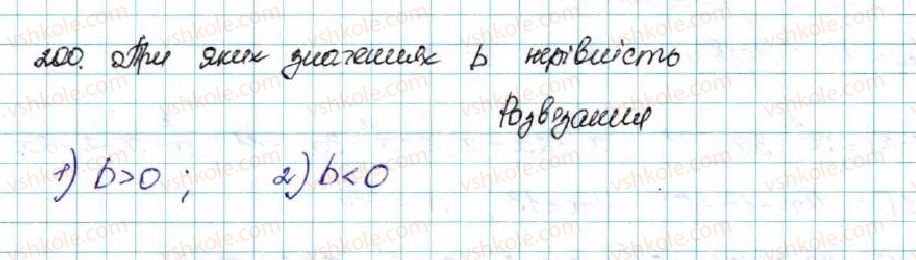 200. При яких значеннях b нерівність
Розвезання
1) b>0 ; 2) b<0
vshkole.com